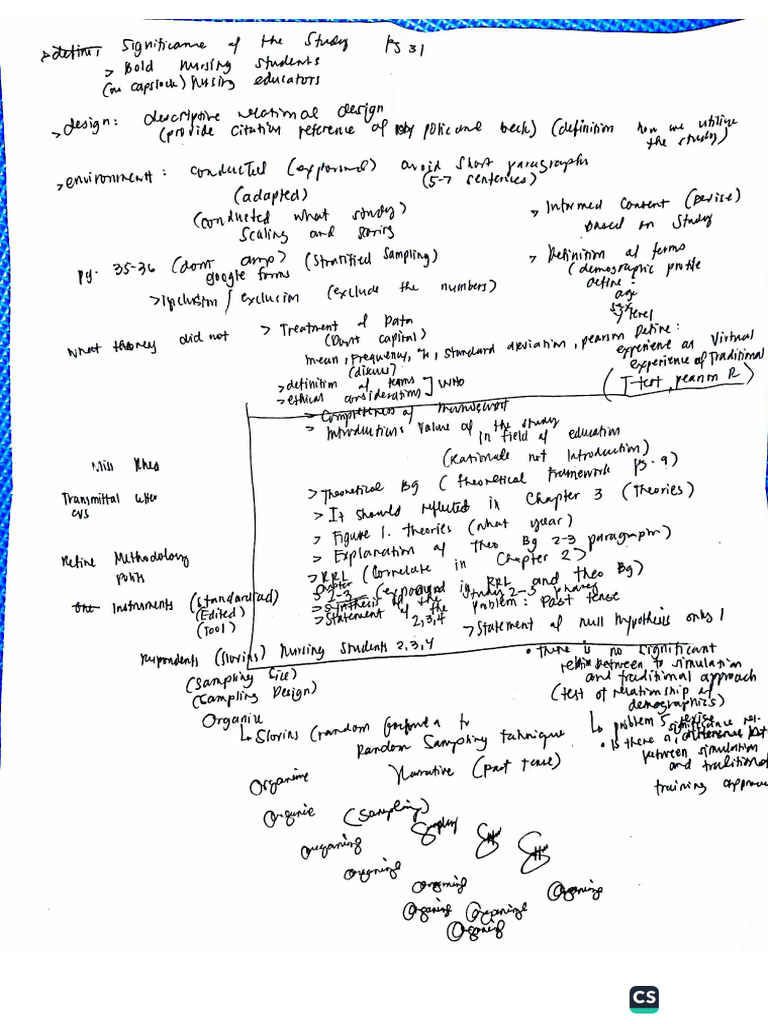 Significance of the Study Pg 31
> Bold nursing students
(no capslock) nursing educators
> design: descriptive relational design
(provide citation reference of by polic and beck) (definition how we utilize
the study)
> environment: conducted (expound) avoid short paragraphs
(5-7 sentences)
(adapted)
(conducted what study)
Scaling and scoring
> Informed Consent (Revise)
based on Study
pg. 35-36 (dont) (Stratified Sampling)
google forms
> Inclusion / exclusion (exclude the numbers)
> Definition of terms
(demographic profile
define:
age
sex
y level
What they did not
> Treatment of Data
(Dont capital)
mean, Frequency, %, standard deviation, pearson
(discuss)
Define:
experience as Virtual
experience of Traditional
(T-test, pearson R)
> definition of terms
> ethical considerations ] WHO
> Completeness of manuscript
> Introductions value of the study
in field of education
(Rationale not Introduction)
Miss
Transmittal letter
CVS
> Theoretical Bg (theoretical framework pg. 9)
> It should reflected in Chapter 3 (Theories)
> Figure 1. theories (what year)
> Explanation of theo Bg 2-3 paragraphs)
Refine Methodology
points
> RRL (Correlate in Chapter 2)
Chapter 2-3 (expound in RRL and theo Bg)
> Synthesis of the study 2-3 phases
> Statement of the problem: Past tense
2,3,4
> Statement of null hypothesis only 1
Instruments (Standardized)
(Edited)
(Tool)
Respondents (Slovins) Nursing Students 2,3,4
(Sampling Size)
(Sampling Design)
Organize
↳ Slovins (random formula to
Random Sampling technique
Narrative (past tense)
• There is no significant
between to simulation
and traditional approach
(test of relationship of
demographics)
↳ problem 5 revise
significance rel.
• Is there a difference
between simulation
and traditional
training approach
Organize
Organize (Sampling)
Organize
Sampling
Organize
Organize
Organize
Organize Organize
Organize
CS